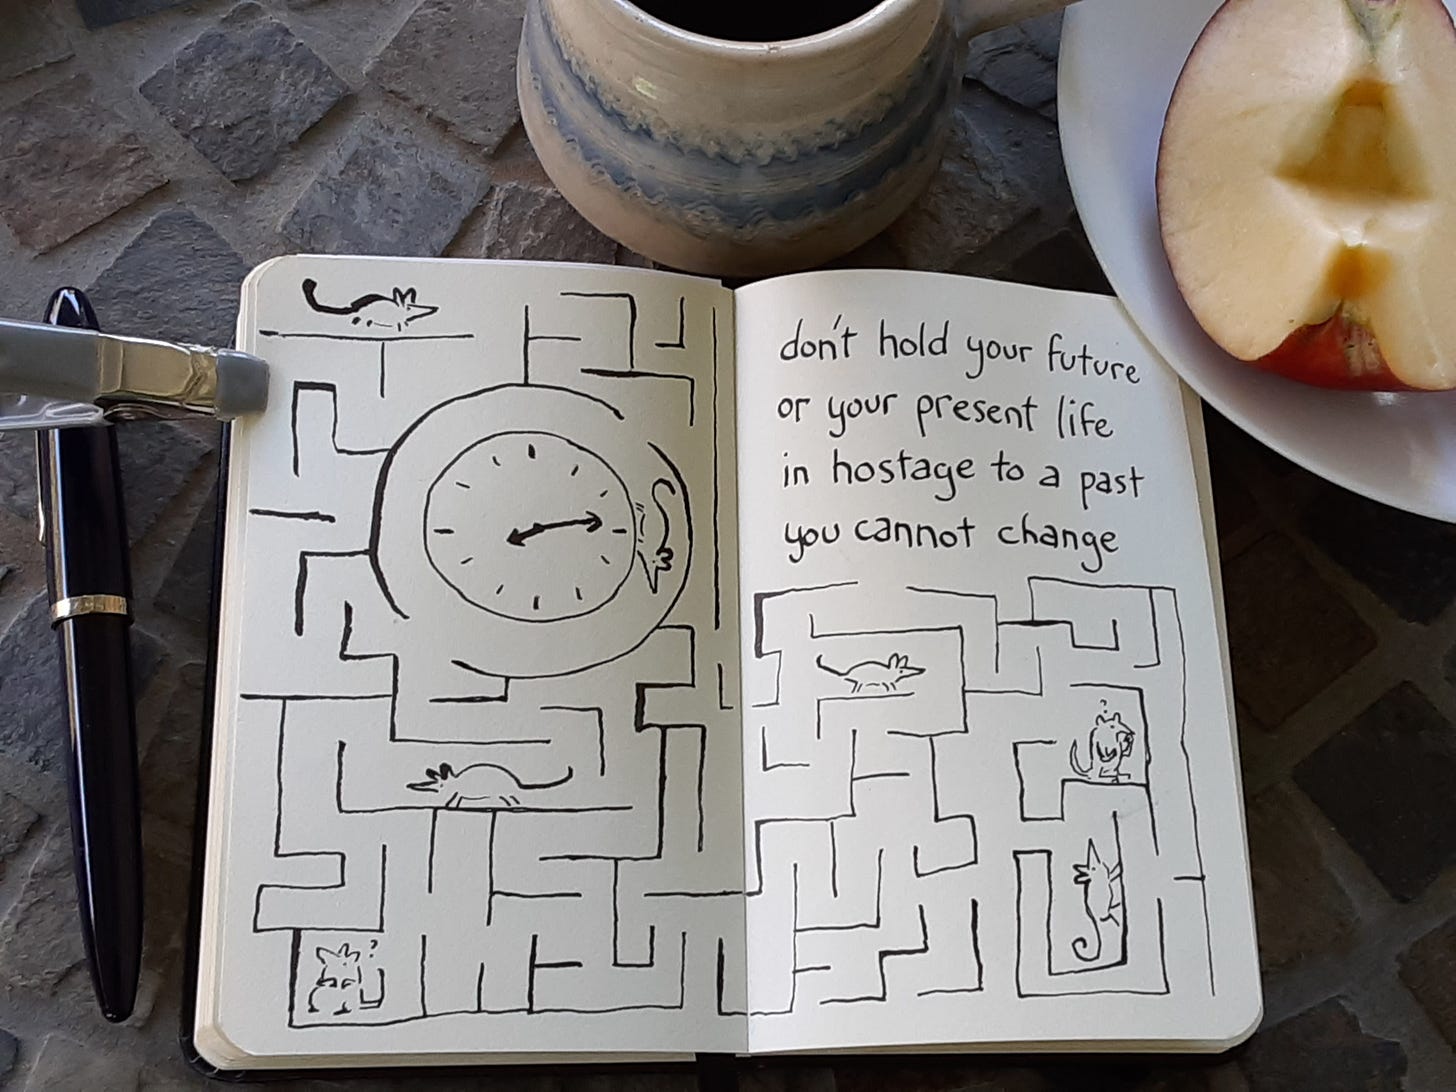 don't hold your future
or your present life
in hostage to a past
you cannot change
?
?